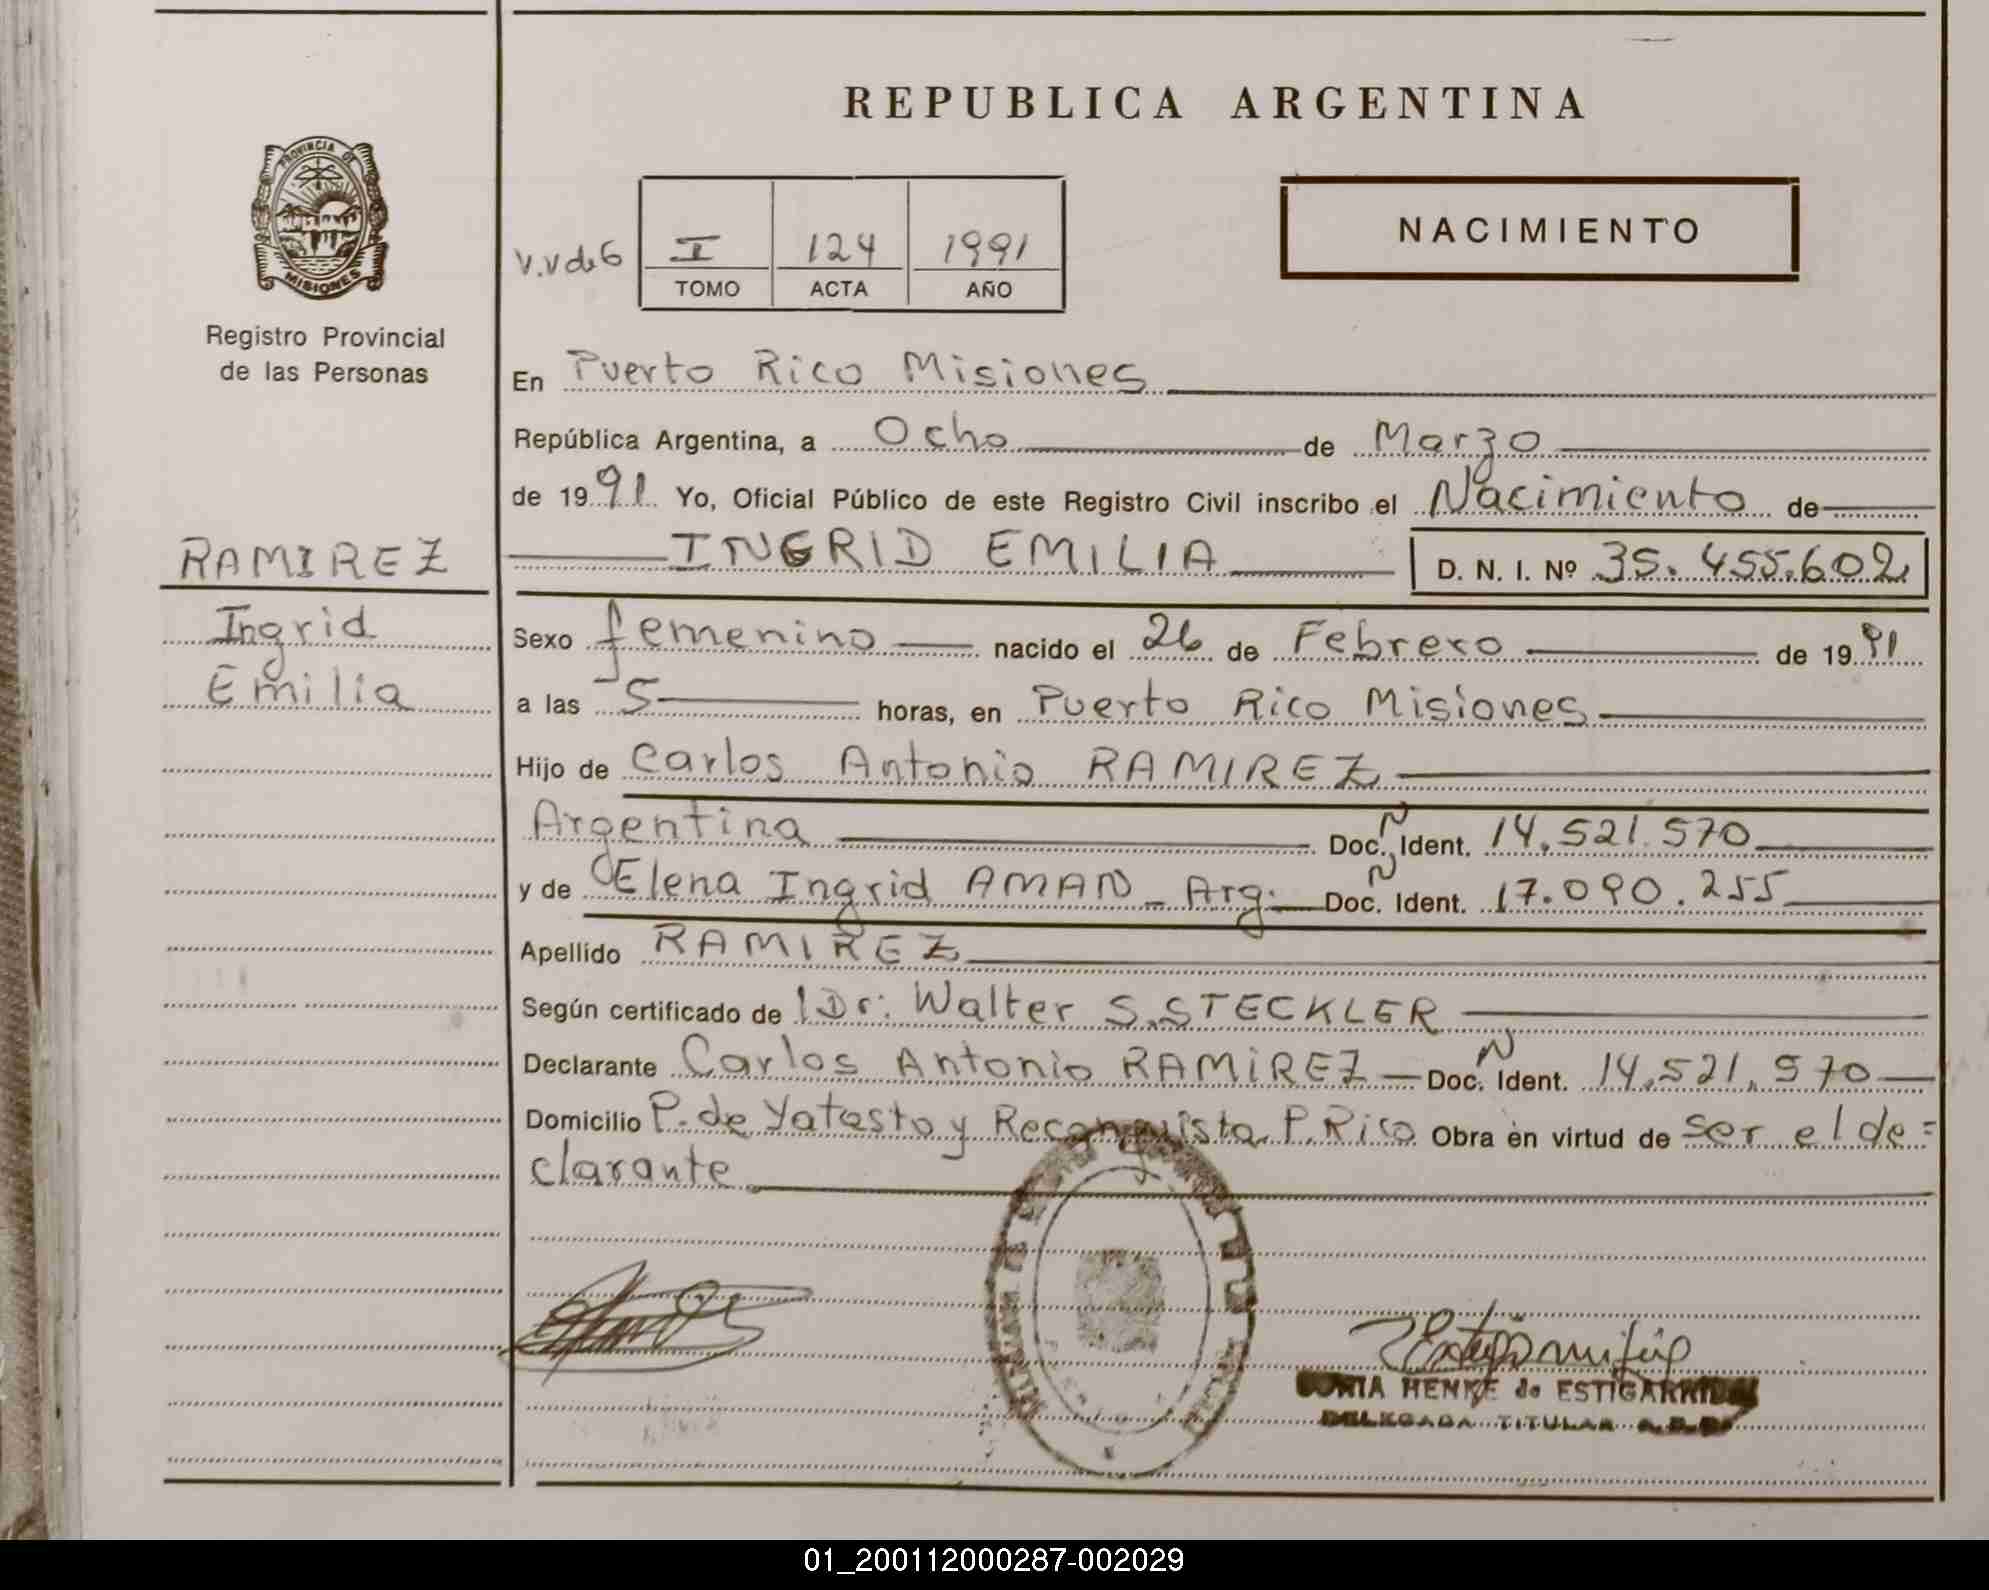 REPUBLICA ARGENTINA
PROVINCIA DE
MISIONES
Registro Provincial
de las Personas
NACIMIENTO
V.V de 6 I 124 1991
TOMO ACTA AÑO
En Puerto Rico Misiones
República Argentina, a Ocho de Marzo
de 1991 Yo, Oficial Público de este Registro Civil inscribo el Nacimiento de
INGRID EMILIA D. N. I. Nº 35.455.602
RAMIREZ
Ingrid
Emilia
Sexo femenino nacido el 26 de Febrero de 1991
a las 5 horas, en Puerto Rico Misiones
Hijo de Carlos Antonio RAMIREZ
Argentina Doc. N Ident. 14.521.570
y de Elena Ingrid AMAN - Arg. Doc. N Ident. 17.090.255
Apellido RAMIREZ
Según certificado de Dr: Walter S. STECKLER
Declarante Carlos Antonio RAMIREZ Doc. N Ident. 14.521.570
Domicilio P. de Yatasto y Reconquista P. Rico Obra en virtud de ser el de=
clarante
SONIA HENKE de ESTIGARRIBIA
DELEGADA TITULAR
01_200112000287-002029